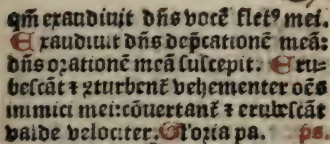 qm̃ exaudiuit dñs vocē flet⁹ mei.
Exaudiuit dñs dep̃cationē meā:
dñs orationē meā suscepit. Eru-
bescāt ⁊ ꝯturbent̃ vehementer oēs
inimici mei: cōuertant̃ ⁊ erubescāt
valde velociter. Gloria pa. ps.